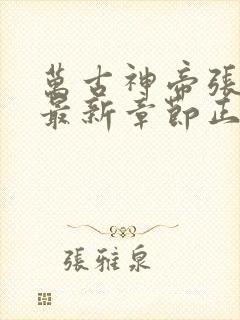 萬古神帝張
最新章節正
張雅泉